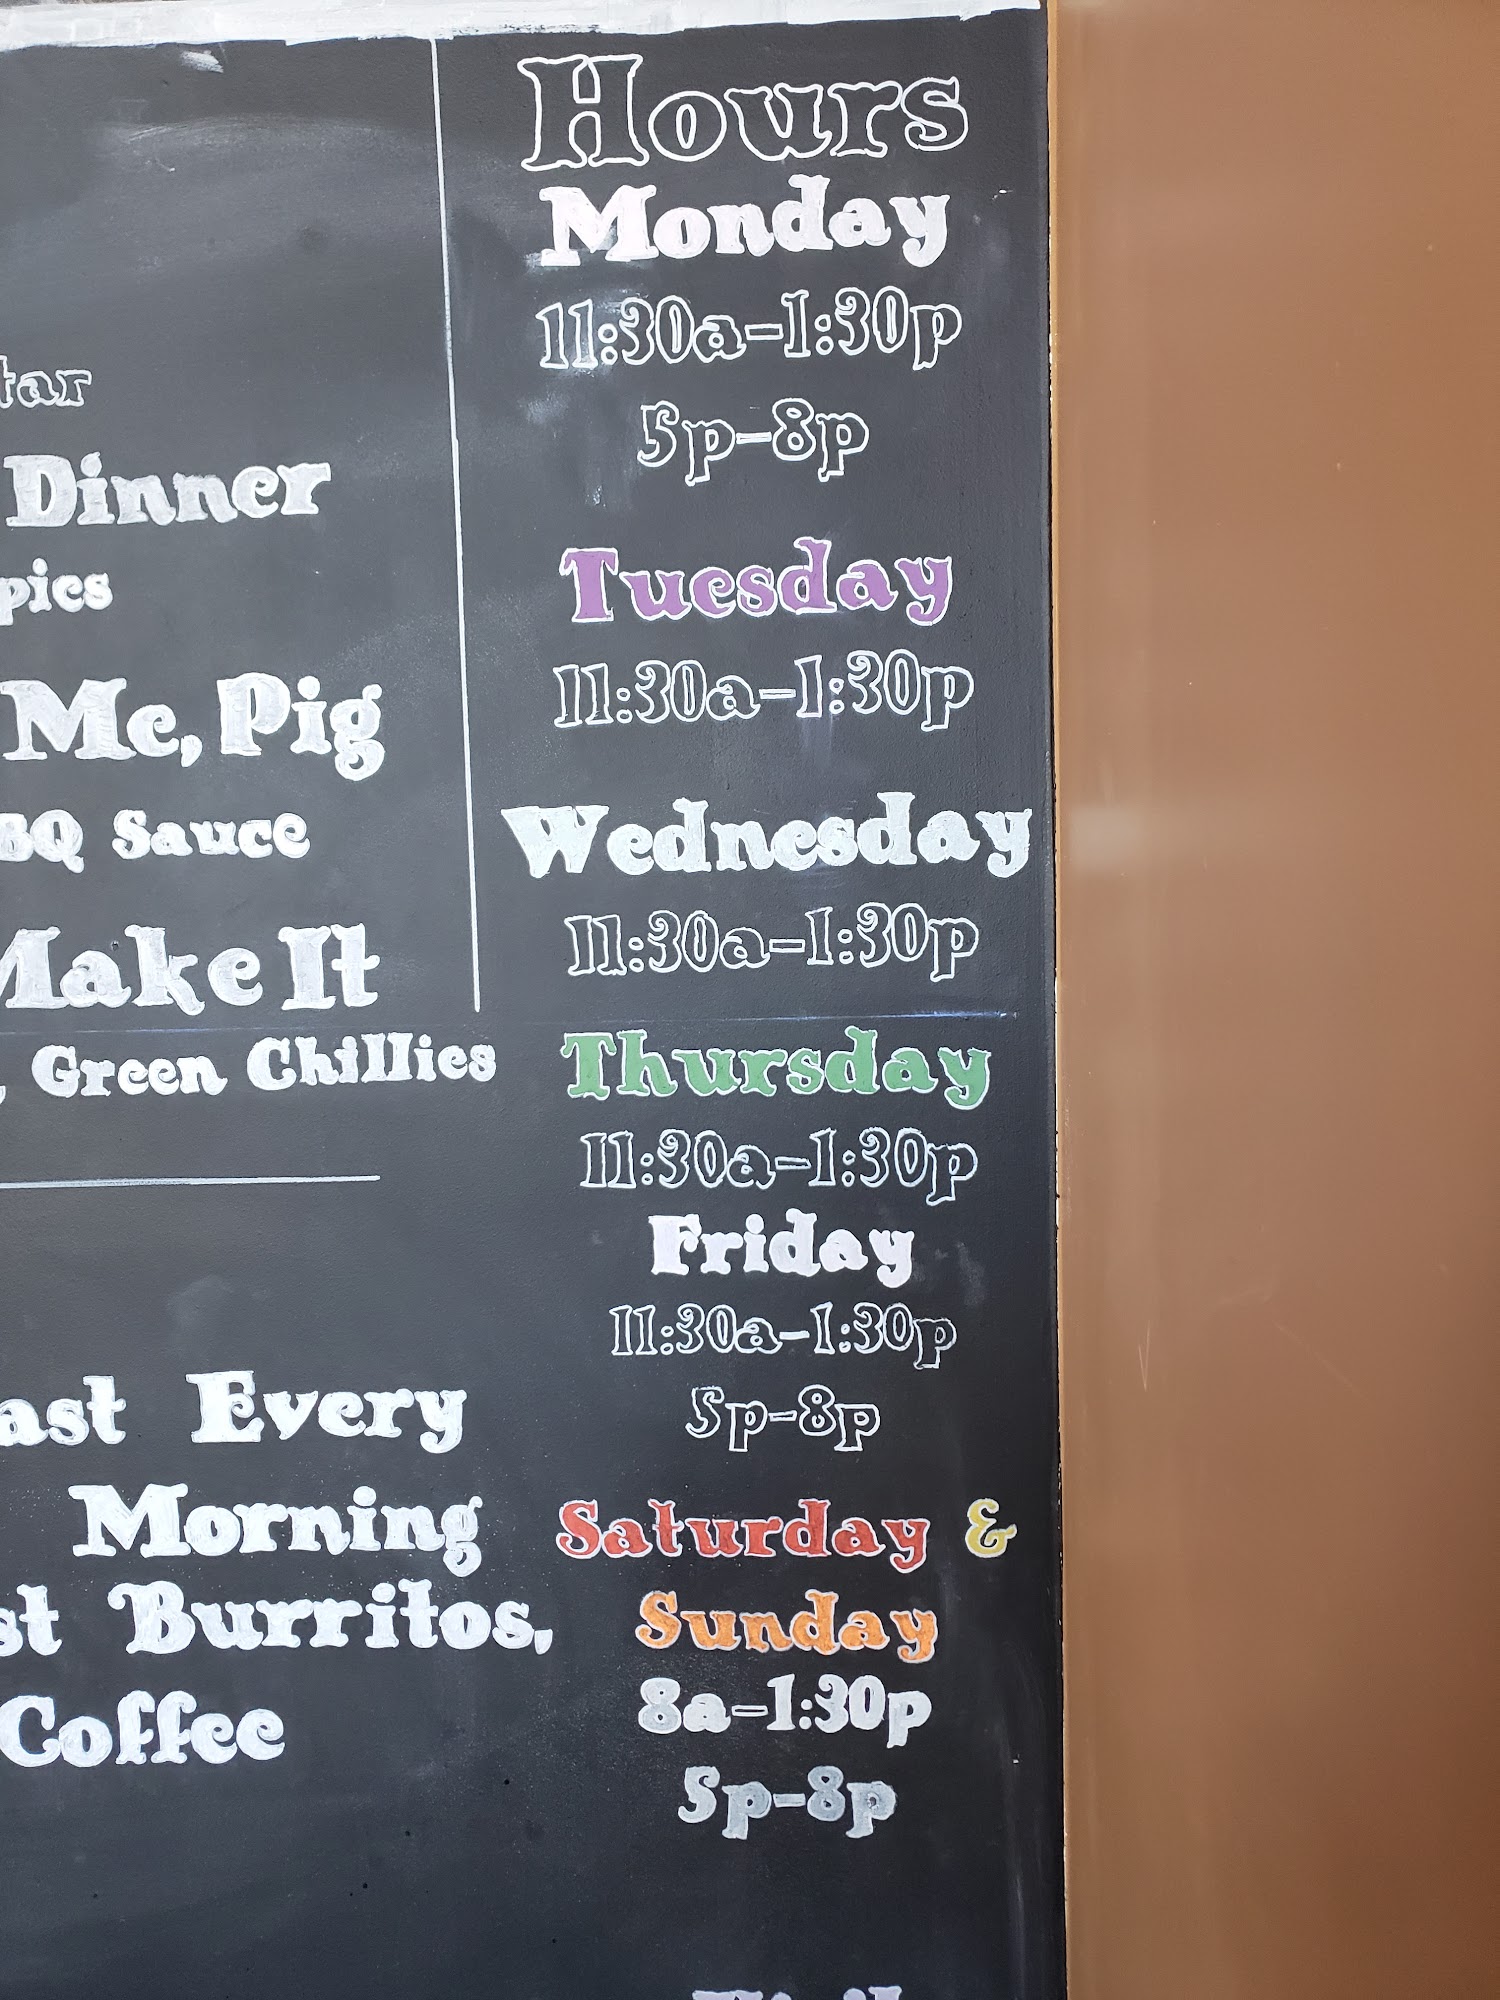 tar
Dinner
pies
Me, Pig
BQ Sauce
Make It
, Green Chillies
ast Every
Morning
st Burritos,
Coffee
Hours
Monday
11:30a-1:30p
5p-8p
Tuesday
11:30a-1:30p
Wednesday
11:30a-1:30p
Thursday
11:30a-1:30p
Friday
11:30a-1:30p
5p-8p
Saturday &
Sunday
8a-1:30p
5p-8p